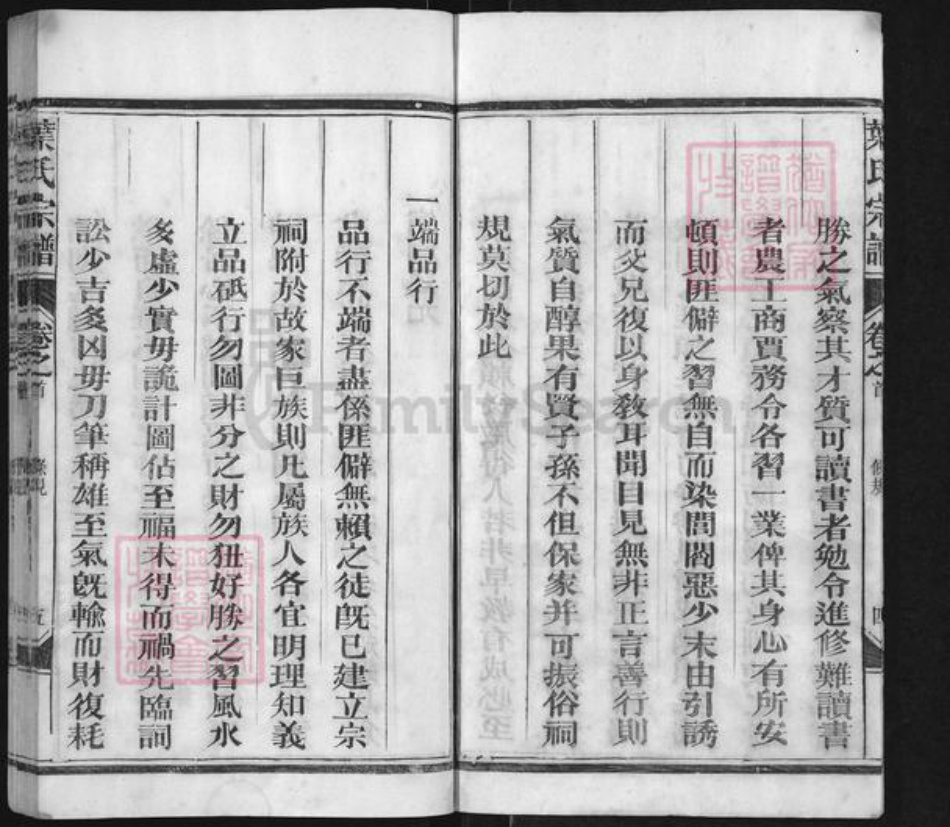 葉氏宗譜
卷之首
條規
四
勝之氣察其才質可讀書者勉令進修難讀書
者農工商賈務令各習一業俾其身心有所安
頓則匪僻之習無自而染閭閻惡少末由引誘
而父兄復以身教耳聞目見無非正言善行則
氣質自醇果有賢子孫不但保家并可振俗祠
規莫切於此
一端品行
品行不端者盡係匪僻無賴之徒旣已建立宗
祠附於故家巨族則凡屬族人各宜明理知義
立品砥行勿圖非分之財勿狃好勝之習風水
多虛少實毋詭計圖佔至福未得而禍先臨詞
訟少吉多凶毋刀筆稱雄至氣旣輸而財復耗
葉氏宗譜
卷之首
條規
五
FamilySearch